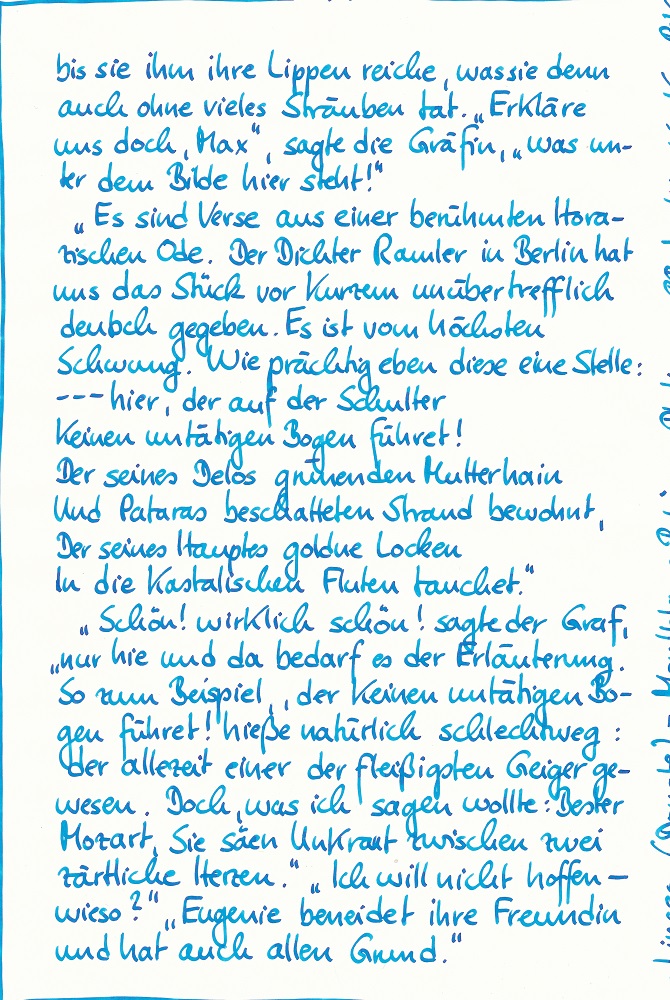 bis sie ihm ihre Lippen reiche, was sie denn
auch ohne vieles Sträuben tat. „Erkläre
uns doch, Max“, sagte die Gräfin, „was un-
ter dem Bilde hier steht!“
„Es sind Verse aus einer berühmten Hora-
zischen Ode. Der Dichter Ramler in Berlin hat
uns das Stück vor Kurzem unübertrefflich
deutsch gegeben. Es ist vom höchsten
Schwung. Wie prächtig eben diese eine Stelle:
--- hier, der auf der Schulter
Keinen untätigen Bogen führet!
Der seines Delos grünenden Mutterhain
Und Pataras beschatteten Strand bewohnt,
Der seines Hauptes goldne Locken
In die Kastalischen Fluten tauchet.“
„Schön! wirklich schön! sagte der Graf,
„nur hie und da bedarf es der Erläuterung.
So zum Beispiel, ‚der Keinen untätigen Bo-
gen führet! hieße natürlich schlechtweg:
der allezeit einer der fleißigsten Geiger ge-
wesen. Doch, was ich sagen wollte: Bester
Mozart, Sie säen Unkraut zwischen zwei
zärtliche Herzen.“ „Ich will nicht hoffen –
wieso?“ „Eugenie beneidet ihre Freundin
und hat auch allen Grund.“